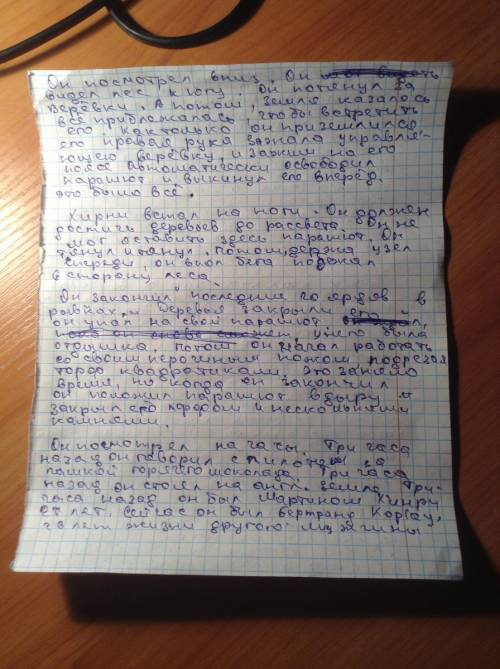 Он посмотрел вниз. Он
видел лес к югу. Он потянул за
верёвки. А потом, земля казалось
всё приближалась, чтобы встретить
его как только он приземлился
его правая рука зажала управля-
ющею верёвку, и зажим на его
поясе автоматически освободил
парашют и выкинул его вперёд.
это было всё.
Хирни встал на ноги. Он должен
достичь деревьев до рассвета. Он не
мог оставить здесь парашют. Он
тянул и тянул. Потом, держа узел
спереди, он пол бега побежал
в сторону леса.
Он закончил последние 20 ярдов в
рывках, и деревья закрыли его и
он упал на свой парашют.
у него была
отдышка. Потом он начал работать
со своим ножом, подрезая
торф квадратиками. Это заняло
время, но когда он закончил
он положил парашют в дыру и
закрыл его торфом и несколькими
камнями.
Он посмотрел на часы. Три часа
назад он говорил с пилотом за
чашкой горячего шоколада. Три часа
назад он стоял на англ. земле. Три
часа назад он был Мартином Хирни
лет. Сейчас он был Бертранд Корлау,
лет жизни другого мужчины